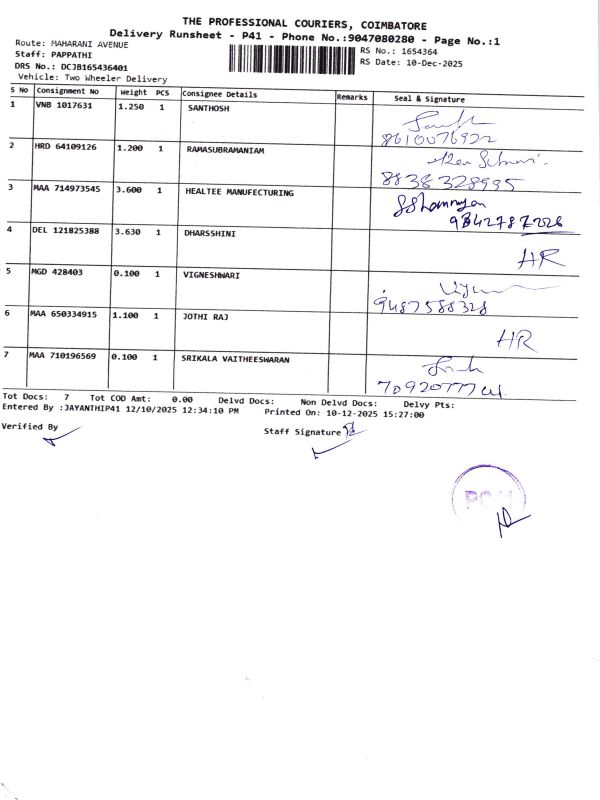 THE PROFESSIONAL COURIERS, COIMBATORE
Delivery Runsheet - P41 - Phone No.:9047080280 - Page No.:1
Route: MAHARANI AVENUE
Staff: PAPPATHI
DRS No.: DCJB165436401
Vehicle: Two Wheeler Delivery
RS No.: 1654364
RS Date: 10-Dec-2025
S No Consignment No Weight PCS Consignee Details Remarks Seal & Signature
1 VNB 1017631 1.250 1 SANTHOSH
8610076922
2 HRD 64109126 1.200 1 RAMASUBRAMANIAM
8838328995
3 MAA 714973545 3.600 1 HEALTEE MANUFECTURING
4 DEL 121825388 3.630 1 DHARSSHINI HR
5 MGD 428403 0.100 1 VIGNESHWARI
9487588328
6 MAA 650334915 1.100 1 JOTHI RAJ HR
7 MAA 710196569 0.100 1 SRIKALA VAITHEESWARAN
Tot Docs: 7 Tot COD Amt: 0.00 Delvd Docs: Non Delvd Docs: Delvy Pts:
Entered By :JAYANTHIP41 12/10/2025 12:34:10 PM Printed On: 10-12-2025 15:27:00
Verified By
Staff Signature